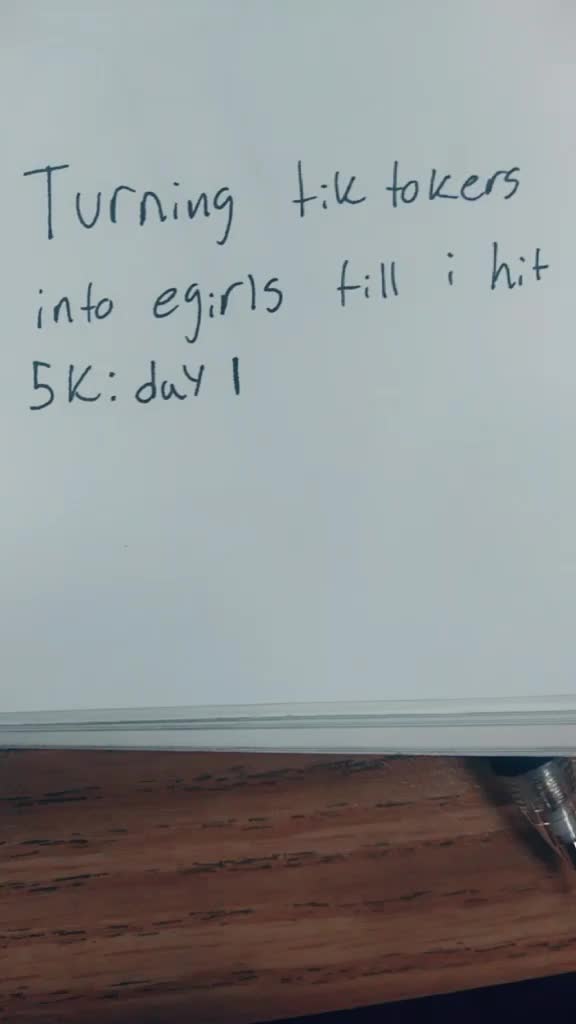 Turning tik tokers
into egirls till i hit
5K: day 1